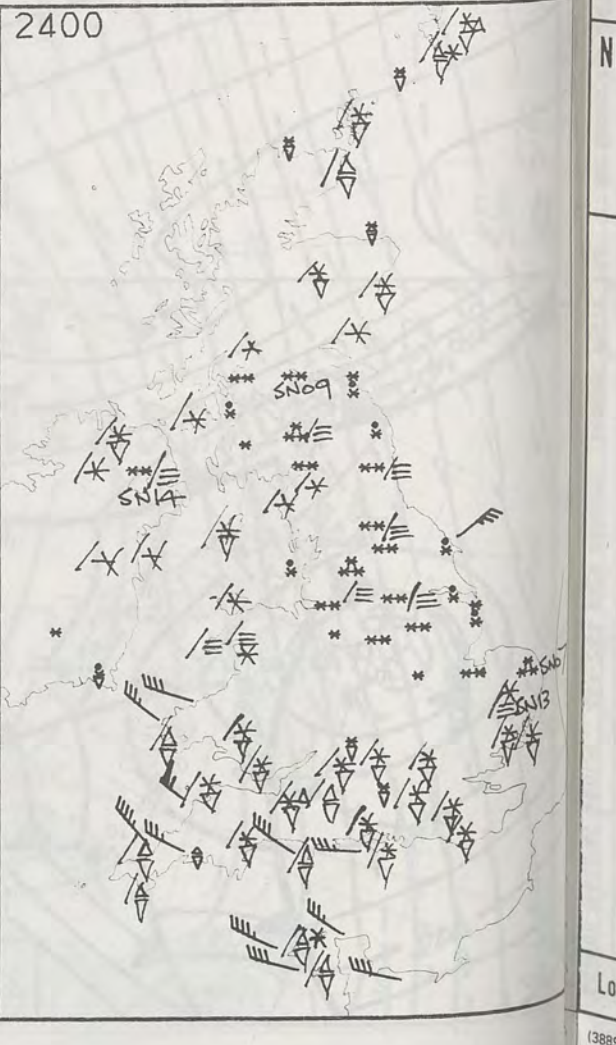 2400
N
SN09
SN14
SN13
Lo
(388